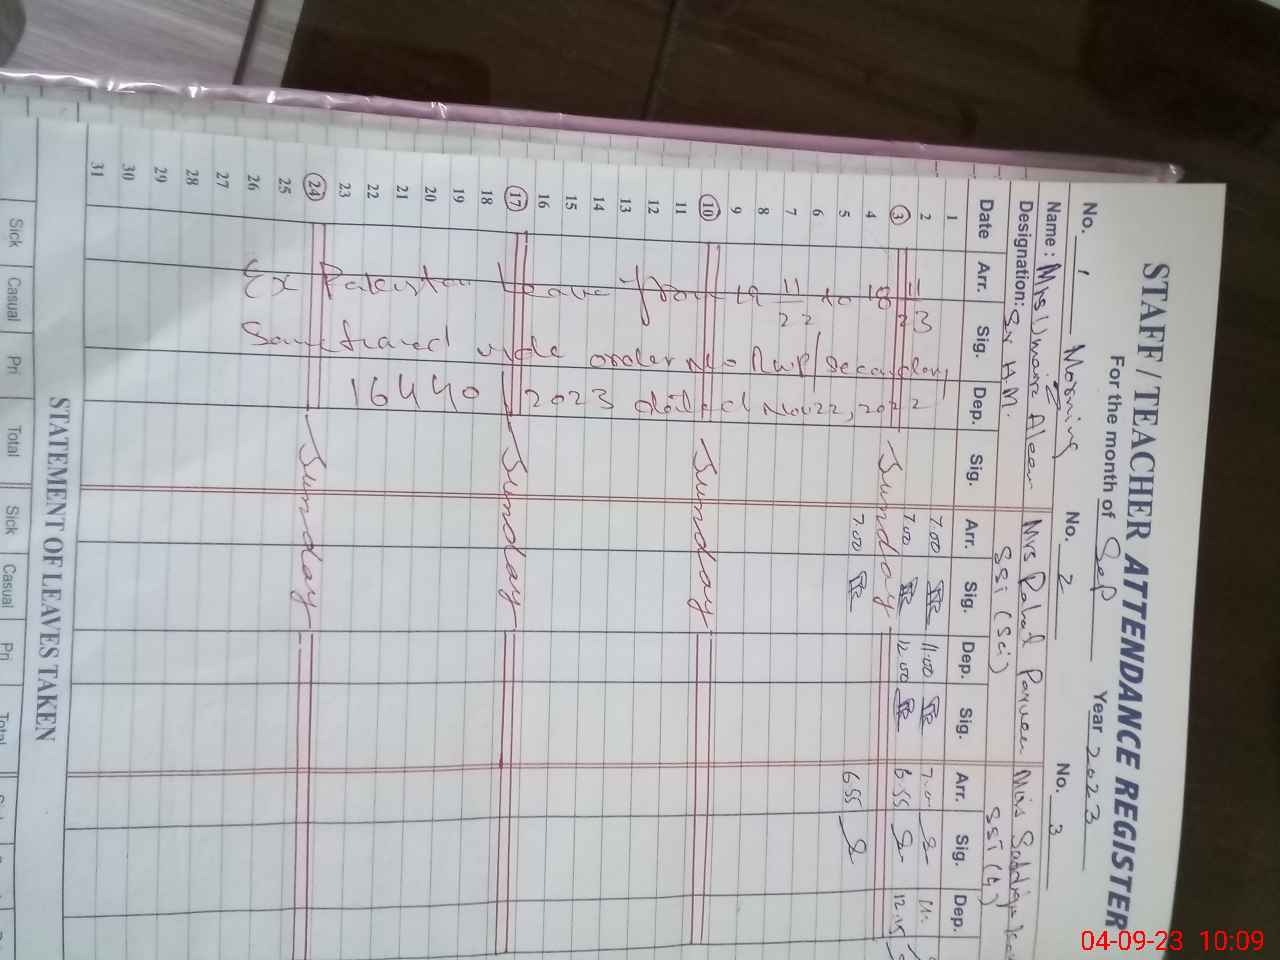 STAFF / TEACHER ATTENDANCE REGISTER
For the month of Sep Year 2023
No. 1 Morning No. 2 No. 3
Name: Mrs Aleem Mrs Parveen Miss
Designation: Sr H.M. SST (Sci) SST (
Date Arr. Sig. Dep. Sig. Arr. Sig. Dep. Sig. Arr. Sig. Dep.
1 7.00 11.00 7.
2 7.00 12.00 6.55 12.15
3 Sunday
4 7.00 6.55
5
6
7
8
9
10 Sunday
11
12
13
14
15
16
17 Sunday
18
19
20
21
22
23
24 Sunday
25
26
27
28
29
30
31
Ex Pakistan Leave from 19 11 22 to 18 2 23
Sanctioned vide order No Rwp/Secondary
16440 / 2023 dated Nov 22, 2022
STATEMENT OF LEAVES TAKEN
Sick Casual Pri Total Sick Casual Pri Total
04-09-23 10:09